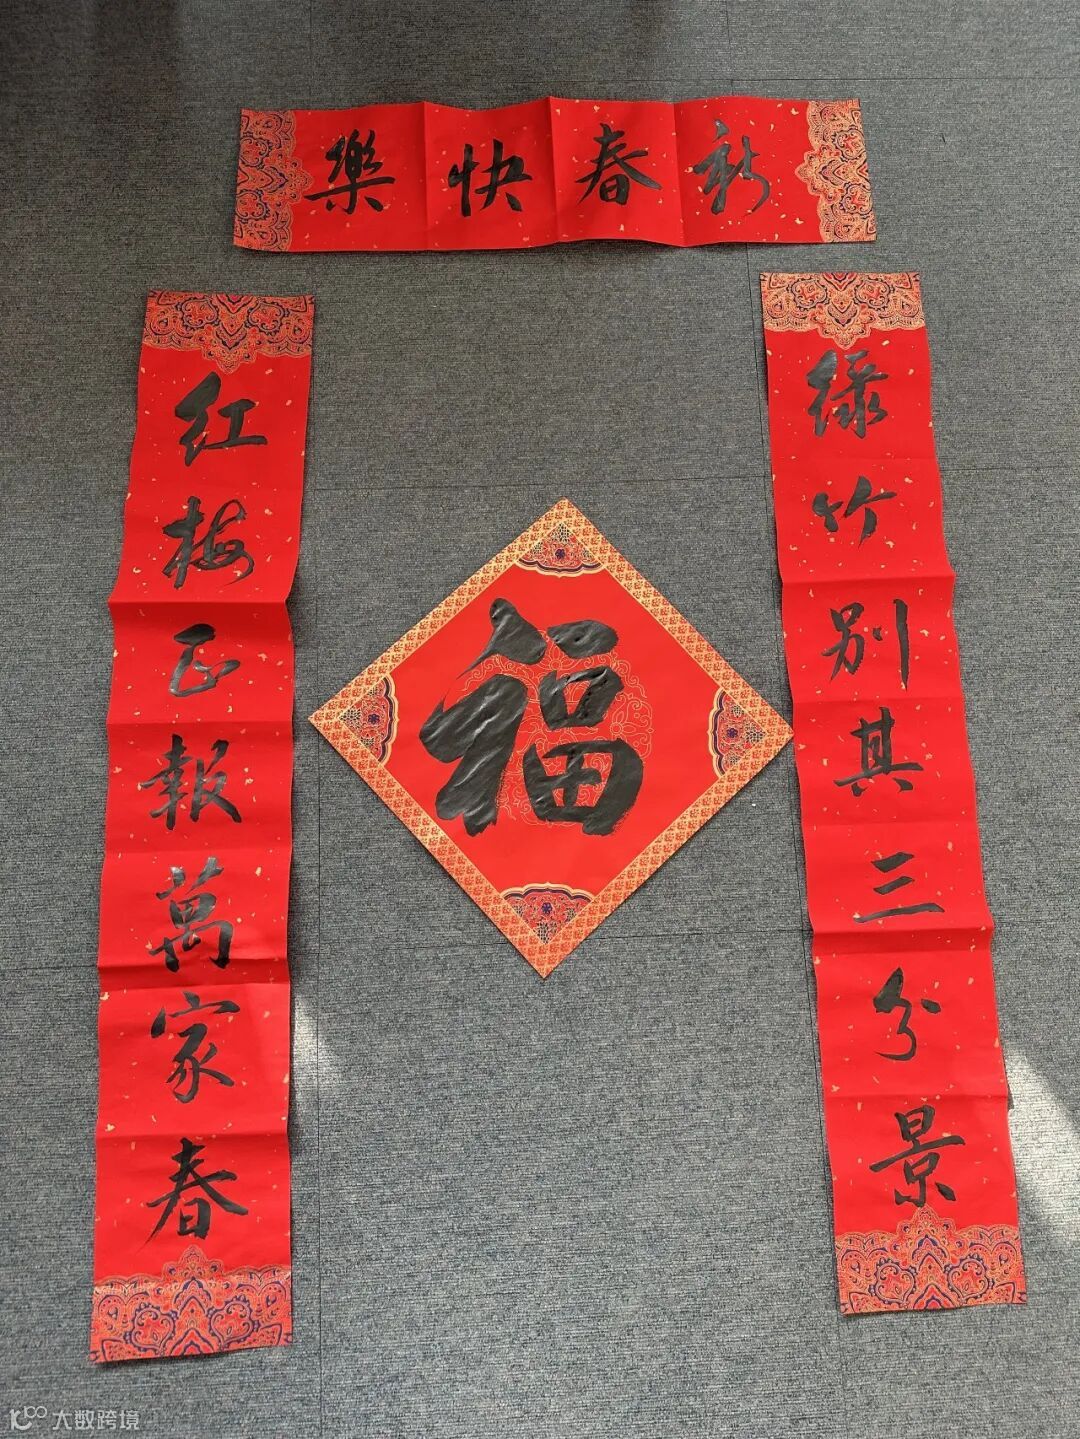 新春快樂
绿竹别其三分景
红梅正報萬家春
福
大数跨境